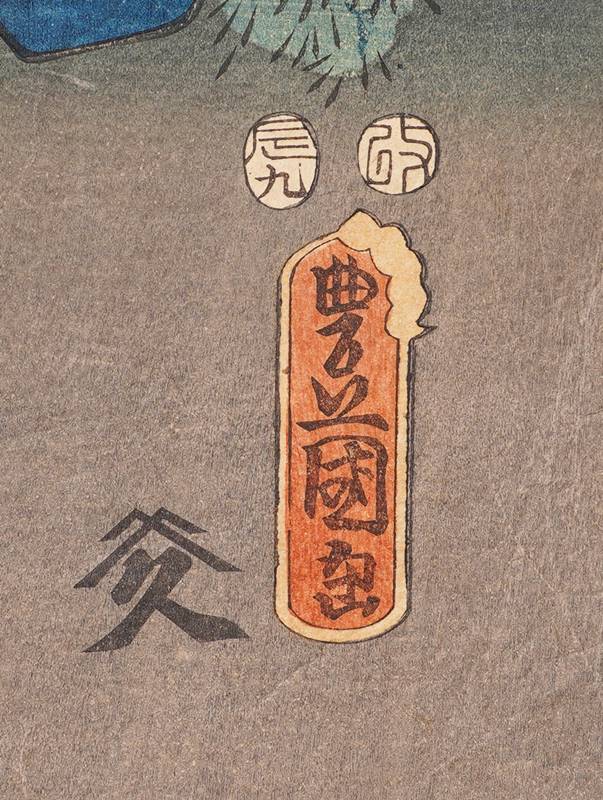 改
辰九
豊国画
久